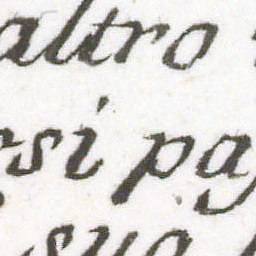 altro
rsi pag
sua